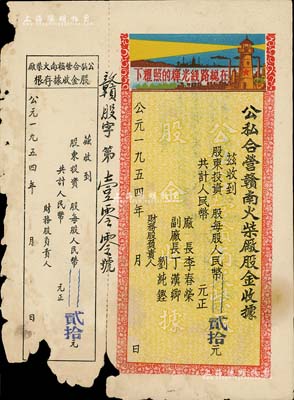 下耀照的輝光綫路總在
公私合營贛南火柴廠股金收據
茲收到
股東投資 股每股人民幣貳拾元
共計人民幣 元正
廠長李春榮
副廠長丁漢卿
財務股負責人劉純鏗
公元一九五四年 月 日
股金收據
贛股字第壹零零號
廠柴火南贛營合私公
根存據收金股
茲收到
股東投資 股每股人民幣貳拾元
共計人民幣 元正
財務股負責人
公元一九五四年 月 日